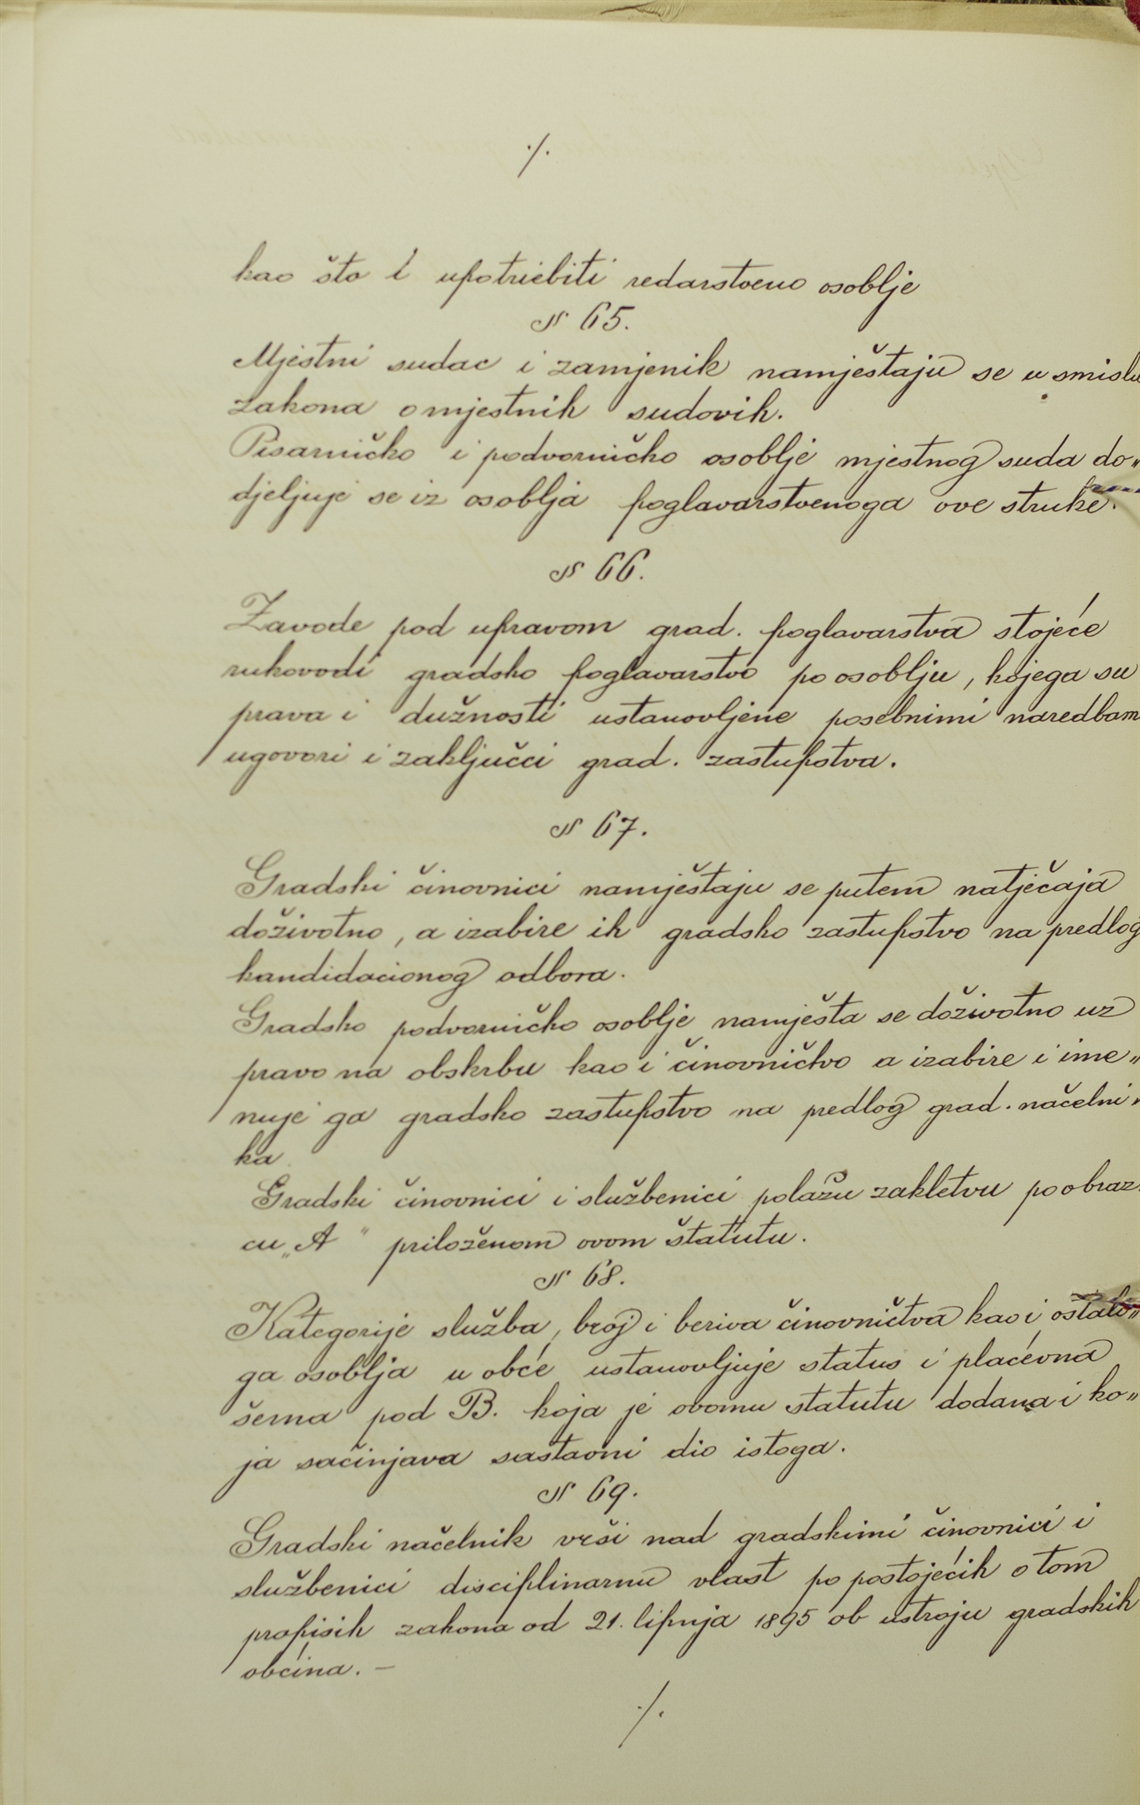 ./.
kao što i upotriebiti redarstveno osoblje
§ 65.
Mjestni sudac i zamjenik namještaju se u smislu
zakona o mjestnih sudovih.
Pisarničko i podvorničko osoblje mjestnog suda do„
djeljuje se iz osoblja poglavarstvenoga ove struke.
§ 66.
Zavode pod upravom grad. poglavarstva stojeće
rukovodi gradsko poglavarstvo po osoblju, kojega su
prava i dužnosti ustanovljene posebnimi naredbam
ugovori i zaključci grad. zastupstva.
§ 67.
Gradski činovnici namještaju se putem natječaja
doživotno, a izabire ih gradsko zastupstvo na predlog
kandidacionog odbora.
Gradsko podvorničko osoblje namješta se doživotno uz
pravo na obskrbu kao i činovničtvo a izabire i ime„
nuje ga gradsko zastupstvo na predlog grad. načelni„
ka
Gradski činovnici i službenici polažu zakletvu po obraz
cu „A“ priloženom ovom štatutu.
§ 68.
Kategorije služba, broj i beriva činovničtva kao i ostalo„
ga osoblja u obće ustanovljuje status i plaćevna
šema pod B. koja je ovomu statutu dodana i ko„
ja sačinjava sastavni dio istoga.
§ 69.
Gradski načelnik vrši nad gradskimi činovnici i
službenici disciplinarnu vlast po postojećih o tom
propisih zakona od 21. lipnja 1895 ob ustroju gradskih
občina. —
./.